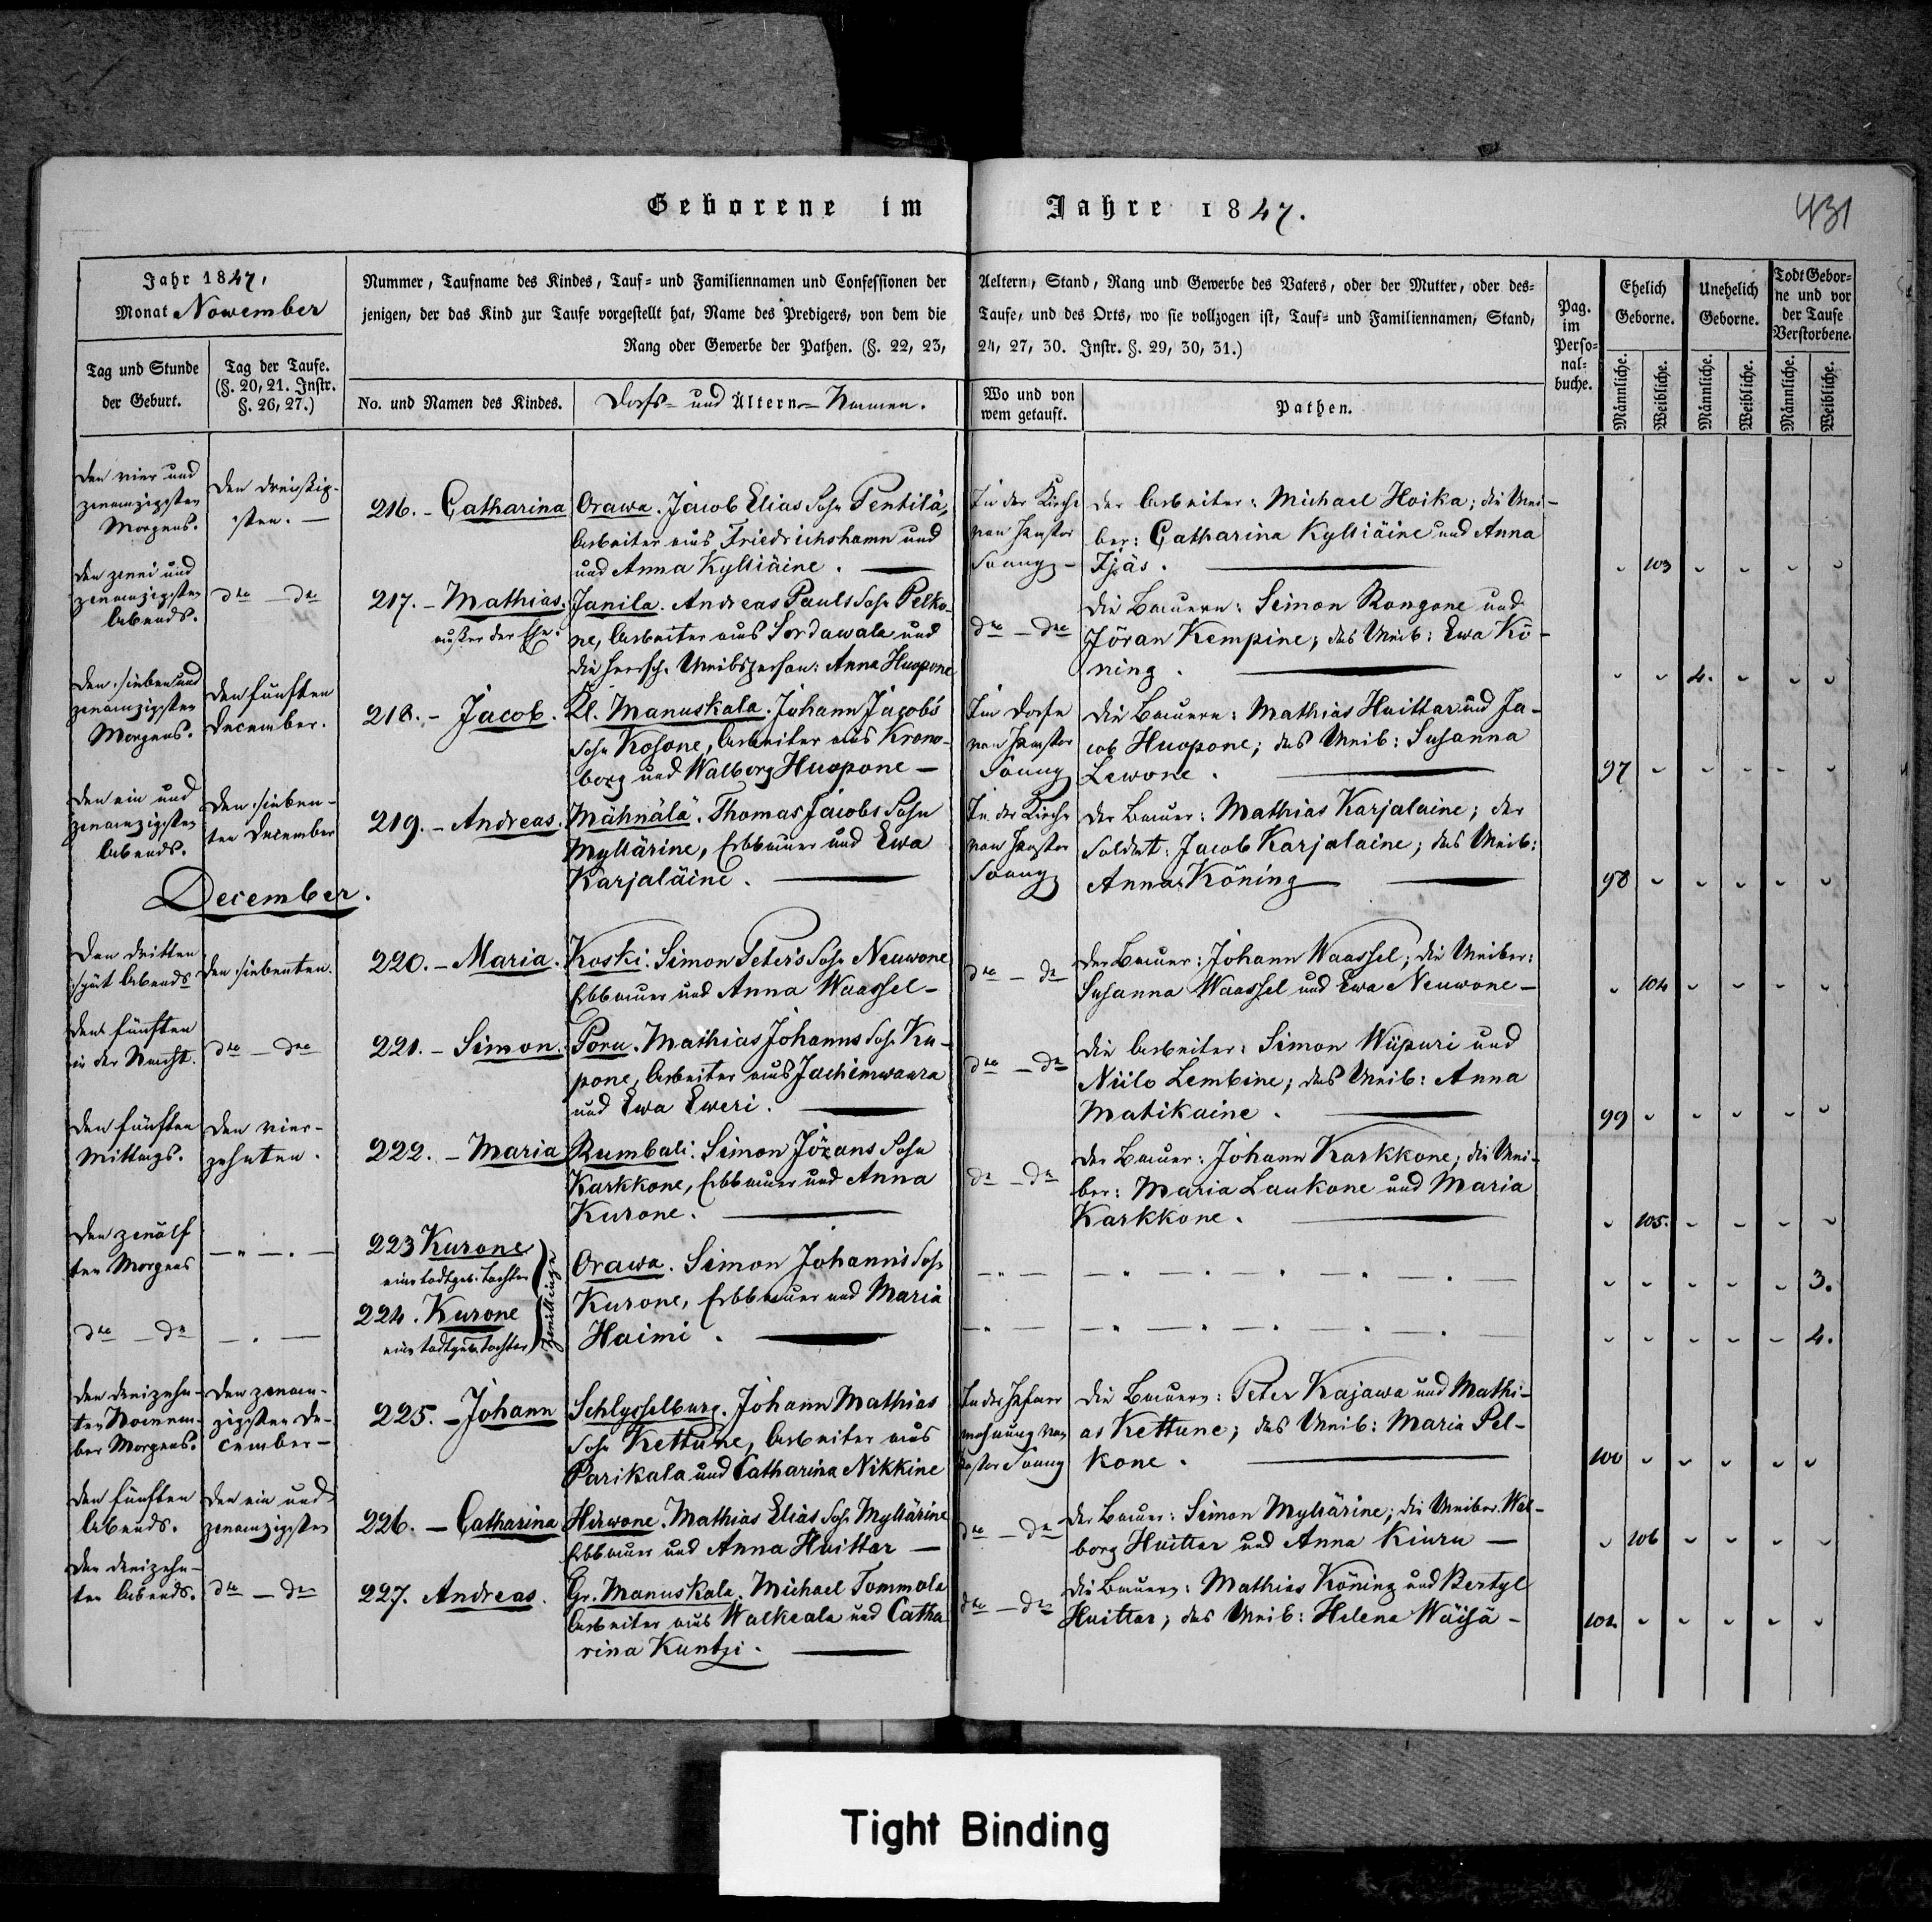 Geborene im Jahre 1847.
431
Jahr 1847,
Monat November
Tag und Stunde
der Geburt.
Tag der Taufe.
(§. 20, 21. Instr.
§. 26, 27.)
Nummer, Taufname des Kindes, Tauf= und Familiennamen und Confessionen der Aeltern, Stand, Rang und Gewerbe des Vaters, oder der Mutter, oder des=
jenigen, der das Kind zur Taufe vorgestellt hat, Name des Predigers, von dem die Taufe, und des Orts, wo sie vollzogen ist, Tauf= und Familiennamen, Stand,
Rang oder Gewerbe der Pathen. (§. 22, 23, 24, 27, 30. Instr. §. 29, 30, 31.)
No. und Namen des Kindes.
Dorfs- und Ältern- Namen.
Wo und von
wem getauft.
Pathen.
Pag.
im
Perso=
nal=
buche.
Ehelich
Geborne.
Unehelich
Geborne.
Todt Gebor=
ne und vor
der Taufe
Verstorbene.
Männliche.
Weibliche.
Männliche.
Weibliche.
Männliche.
Weibliche.
Den vier und
zwanzigsten
Morgens.
Den dreißig-
sten. —
216. - Catharina
Orawa. Jacob Elias Sohn Pentilä,
Arbeiter aus Friedrichshamn und
und Anna Kylliäine. —
In der Kirche
von Pastor
Sraug -
der Arbeiter: Michael Hoika; die Wei-
ber: Catharina Kylliäine und Anna
Tjäs. —
103
Den zwei und
zwanzigsten
Abends.
dto — dto
217. - Mathias.
außer der Ehe.
Janila. Andreas Pauls Sohn Pelko-
ne, Arbeiter aus Sordawala und
die herrsch. Weibsperson: Anna Huopone
dto — dto
Die Bauern: Simon Rongone und
Jöran Kempine; das Weib: Ewa Kö-
ning. —
4.
Den sieben und
zwanzigsten
Morgens.
Den fünften
December.
218. - Jacob.
Kl. Manuskala. Johann Jacobs
Sohn Kosone, Arbeiter aus Krono-
borg und Walborg Huopone —
Im Dorfe
von Pastor
Die Bauern: Mathias Huittar und Ja-
cob Huopone; das Weib: Susanna
Lewone. —
97
Den ein und
zwanzigsten
Abends.
Den sieben-
ten December
219. - Andreas.
Mähnälä. Thomas Jacobs Sohn
Myllärine, Erbbauer und Ewa
Karjaläine. —
In der Kirche
von Pastor
Der Bauer: Mathias Karjalaine; der
Soldat: Jacob Karjalaine; das Weib:
Anna Köning —
98
December.
Den dritten
spät Abends
Den siebenten.
220. - Maria.
Koski. Simon Peter's Sohn Neuwone
Erbbauer und Anna Waassel -
dto — dto
Der Bauer: Johann Waassel; die Weiber:
Susanna Waassel und Ewa Neuwone -
104
Den fünften
in der Nacht.
dto — dto
221. - Simon.
Poru. Mathias Johanns Sohn Ku-
pone, Arbeiter aus Jachimwaara
und Ewa Eweri. —
dto — dto
Die Arbeiter: Simon Wiipuri und
Niilo Lembine; das Weib: Anna
Matikaine. —
99
Den fünften
Mittags.
Den vier-
zehnten.
222. - Maria
Rumbali. Simon Jörans Sohn
Karkkone, Erbbauer und Anna
Kurone. —
dto — dto
Der Bauer: Johann Karkkone; die Wei-
ber: Maria Laukone und Maria
Karkkone. —
105.
Den zwölf
ten Morgens
223 Kurone
eine todtgeb. Tochter
Zwillinge
Orawa. Simon Johann's Sohn
Kurone, Erbbauer und Maria
Haimi. —
3.
dto — dto
224. Kurone
eine todtgeb. Tochter
4.
Den dreizehn-
ten Novem-
ber Morgens.
Den zwan-
zigsten De-
cember -
225. - Johann
Schlysselburg. Johann Mathias
Sohn Kettune, Arbeiter aus
Parikala und Catharina Nikkine
In der Pfarr
wohnung von
Die Bauern: Peter Kajawa und Mathi-
as Kettune; das Weib: Maria Pel-
kone. —
100
Den fünften
Abends.
Den ein und
zwanzigsten
226. - Catharina
Hirwone. Mathias Elias Sohn Myllärine
Erbbauer und Anna Huittar —
dto — dto
Der Bauer: Simon Myllärine; die Weiber: Wal-
borg Huittar und Anna Kiuru —
106
Den dreizehn-
ten Abends.
dto — dto
227. Andreas.
Gr. Manuskala. Michael Tommola
Arbeiter aus Walkeala und Catha
rina Kuntzi. —
dto — dto
Die Bauern: Mathias Köning und Bertyl
Huittar; das Weib: Helena Wäisä -
101.
Tight Binding